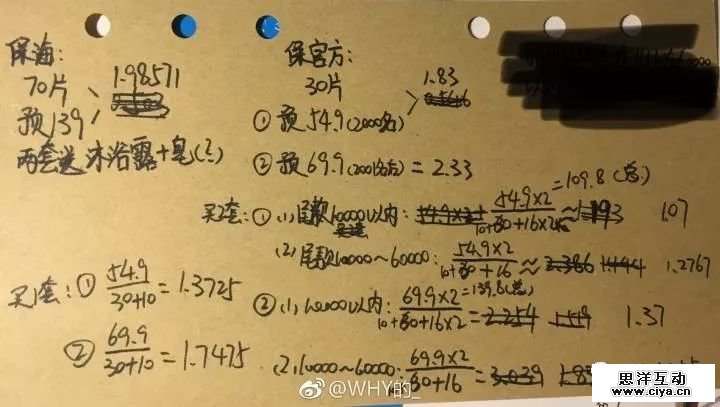 保海：
70片 1.98571
预139
两套送沐浴露+皂(?)
保官方：
30片 1.83
①预54.9(2000名)
②预69.9(2001名后)=2.33
买2套：①(1)尾款10000以内：54.9×2=109.8(总)
10+30+16×2 ≈ 1.07
(2)尾款10000~60000：54.9×2
10+30+16 ≈ 1.2767
②(1)10000以内：69.9×2=139.8(总)
10+30+16×2 = 1.37
(2)10000~60000：69.9×2
30+16 =
买1套：①54.9
30+10 =1.3725
②69.9
30+10 =1.7475
@WHY的_
思洋互动
www.ciya.cn